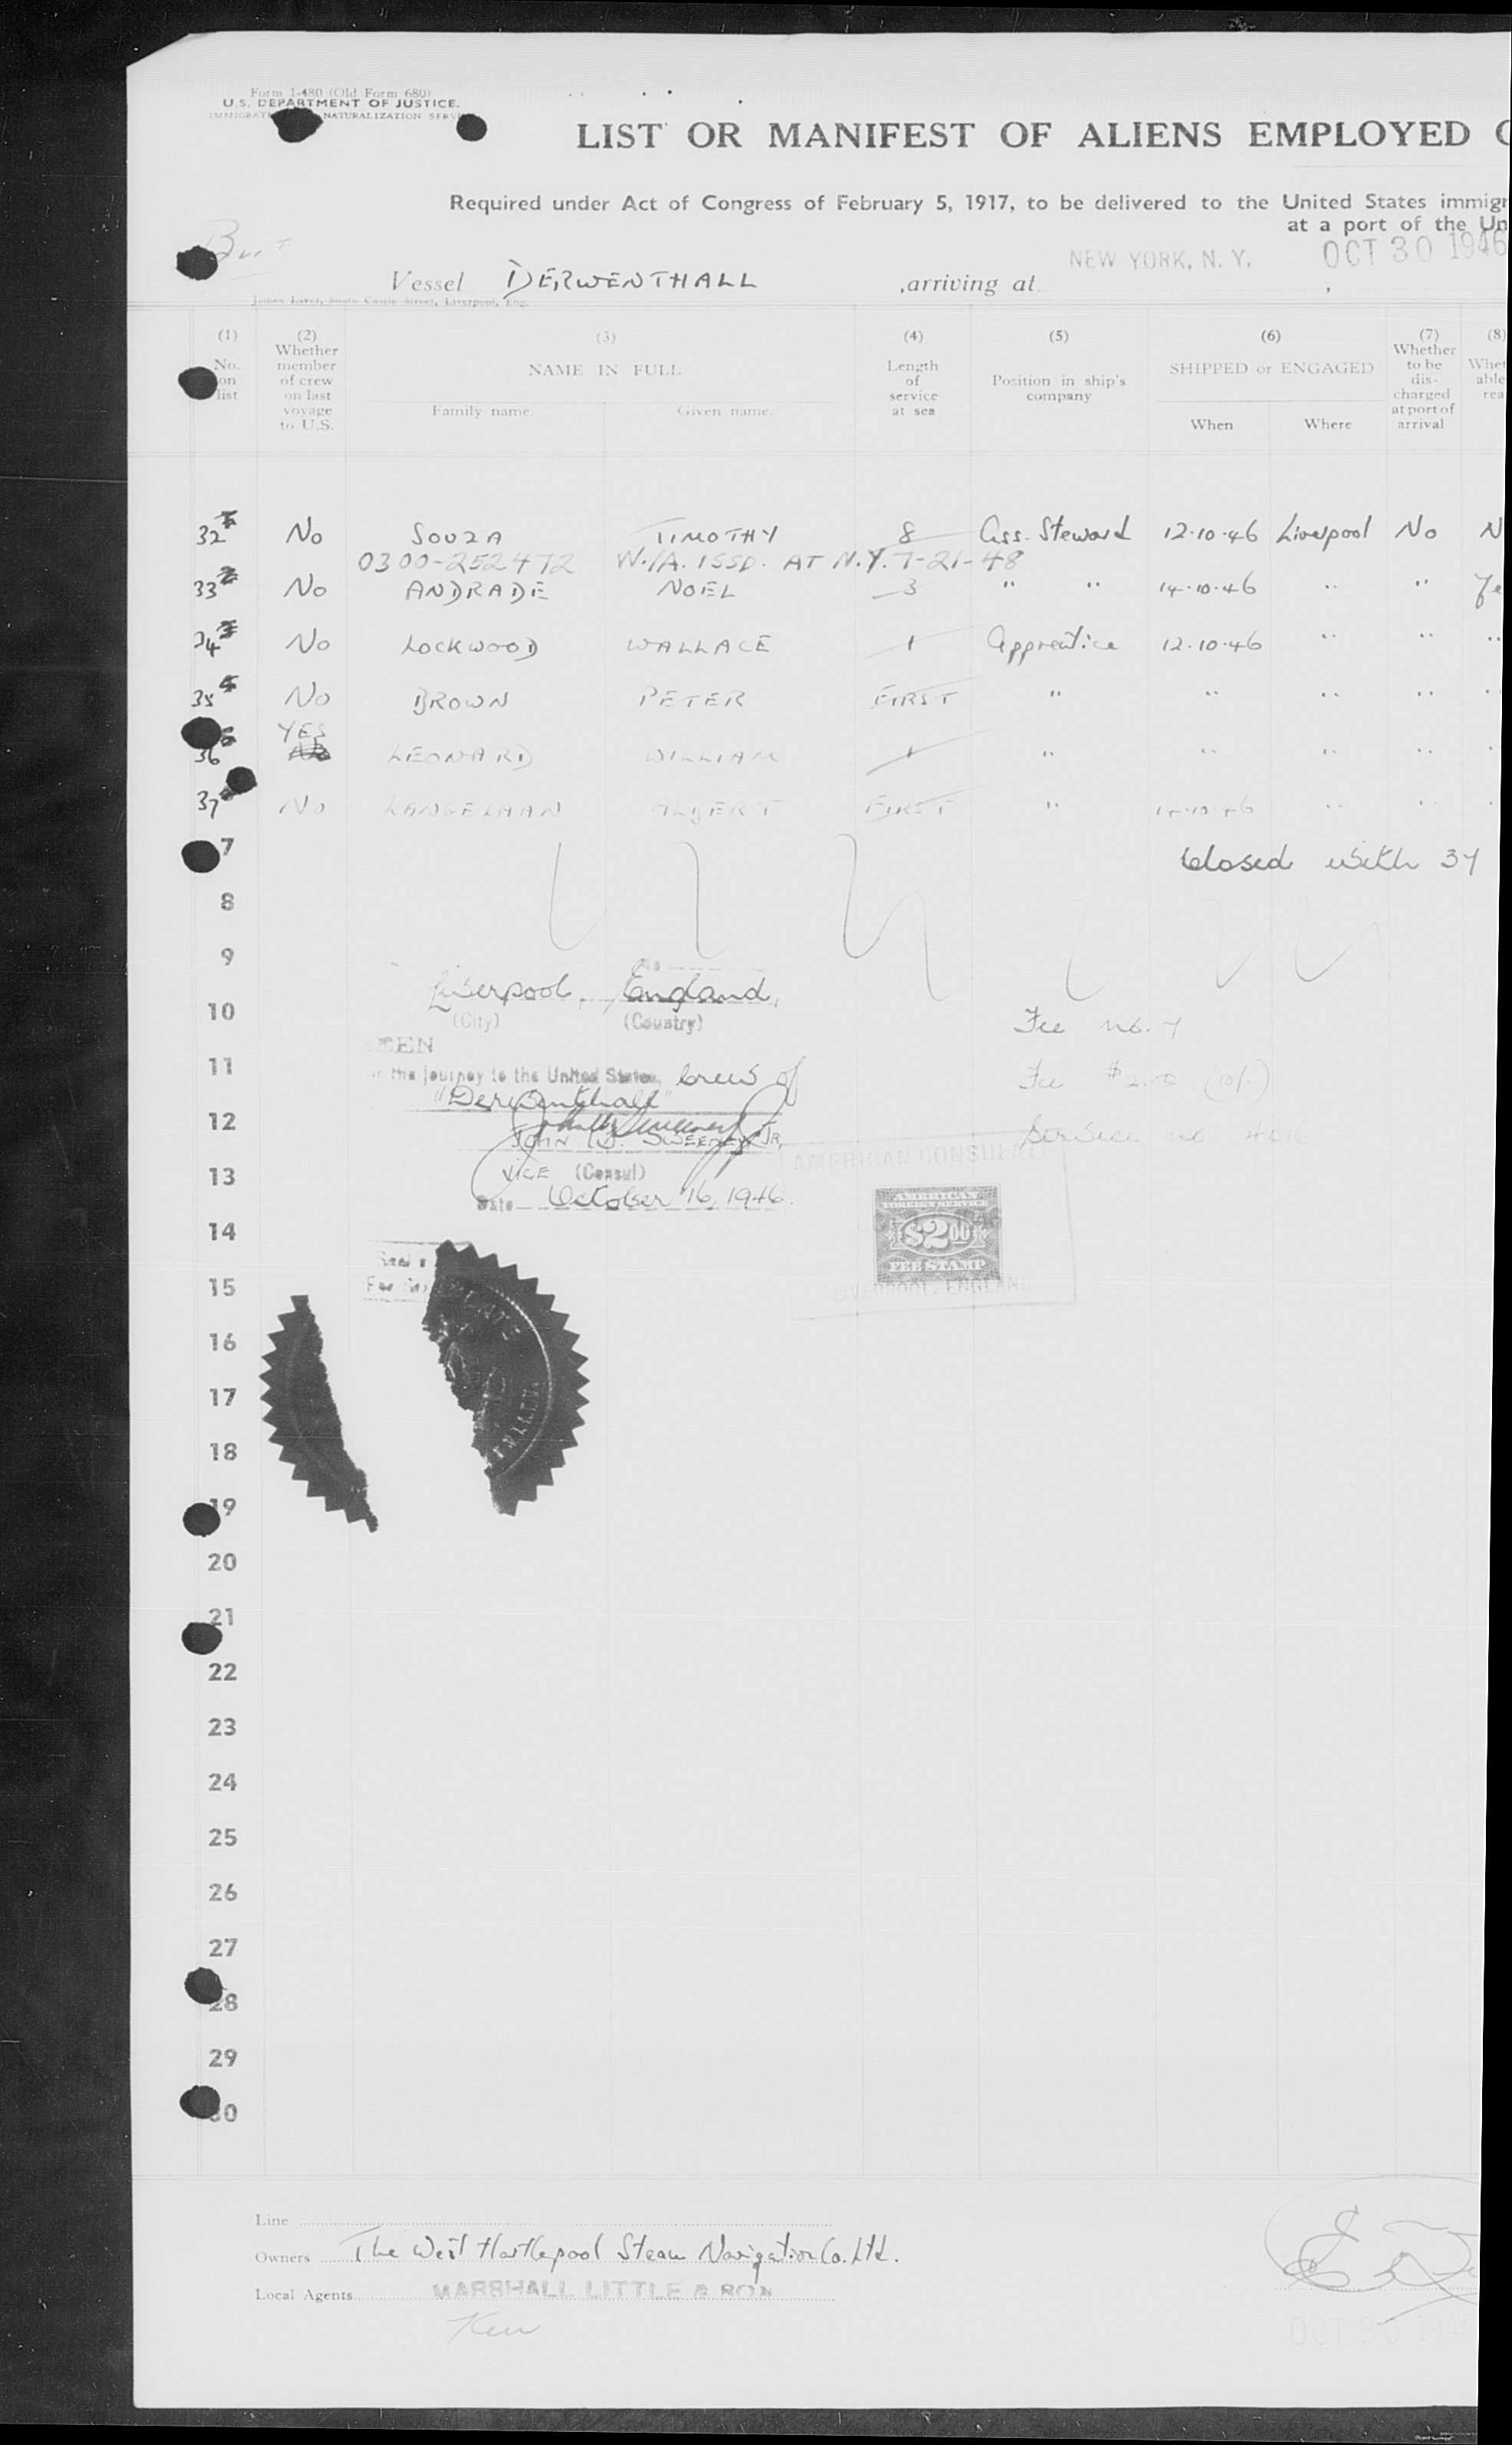 Form I-480 (Old Form 680)
U.S. DEPARTMENT OF JUSTICE.
NATURALIZATION
LIST OR MANIFEST OF ALIENS EMPLOYED
Required under Act of Congress of February 5, 1917, to be delivered to the United States immigr
at a port of the Un
NEW YORK, N. Y. OCT 30 1946
Vessel DERWENTHALL , arriving at ,
(1) (2) (3) (4) (5) (6) (7) (8)
No. on list
Whether member of crew on last voyage to U.S.
NAME IN FULL
Family name. Given name.
Length of service at sea
Position in ship's company
SHIPPED or ENGAGED
When Where
Whether to be discharged at port of arrival
32 No SOUZA TIMOTHY 8 Ass. Steward 12.10.46 Liverpool No N
0300-252472 W./A. ISSD. AT N.Y. 7-21-48
33 No ANDRADE NOEL 3 " " 14.10.46 " " Ye
34 No LOCKWOOD WALLACE 1 Apprentice 12.10.46 " " "
35 No BROWN PETER FIRST " " " " "
36 YES LEONARD WILLIAM 1 " " " " "
37 No LANGELAAN ALBERT FIRST " 14.10.46 " " "
7 Closed with 37
8
9
Liverpool, England,
10 (City) (Country)
11 the journey to the United States, crew of
"Derwenthall"
12 JOHN D. SWEENEY JR,
13 VICE (Consul)
Date October 16, 1946.
Fee no. 7
Fee $2.00 (10/-)
Service no
AMERICAN CONSULATE
AMERICAN
FOREIGN SERVICE
$2.00
FEE STAMP
LIVERPOOL, ENGLAND
14
15
16
17
18
19
20
21
22
23
24
25
26
27
28
29
30
Line
Owners The West Hartlepool Steam Navigation Co. Ltd.
Local Agents MARSHALL LITTLE & SON